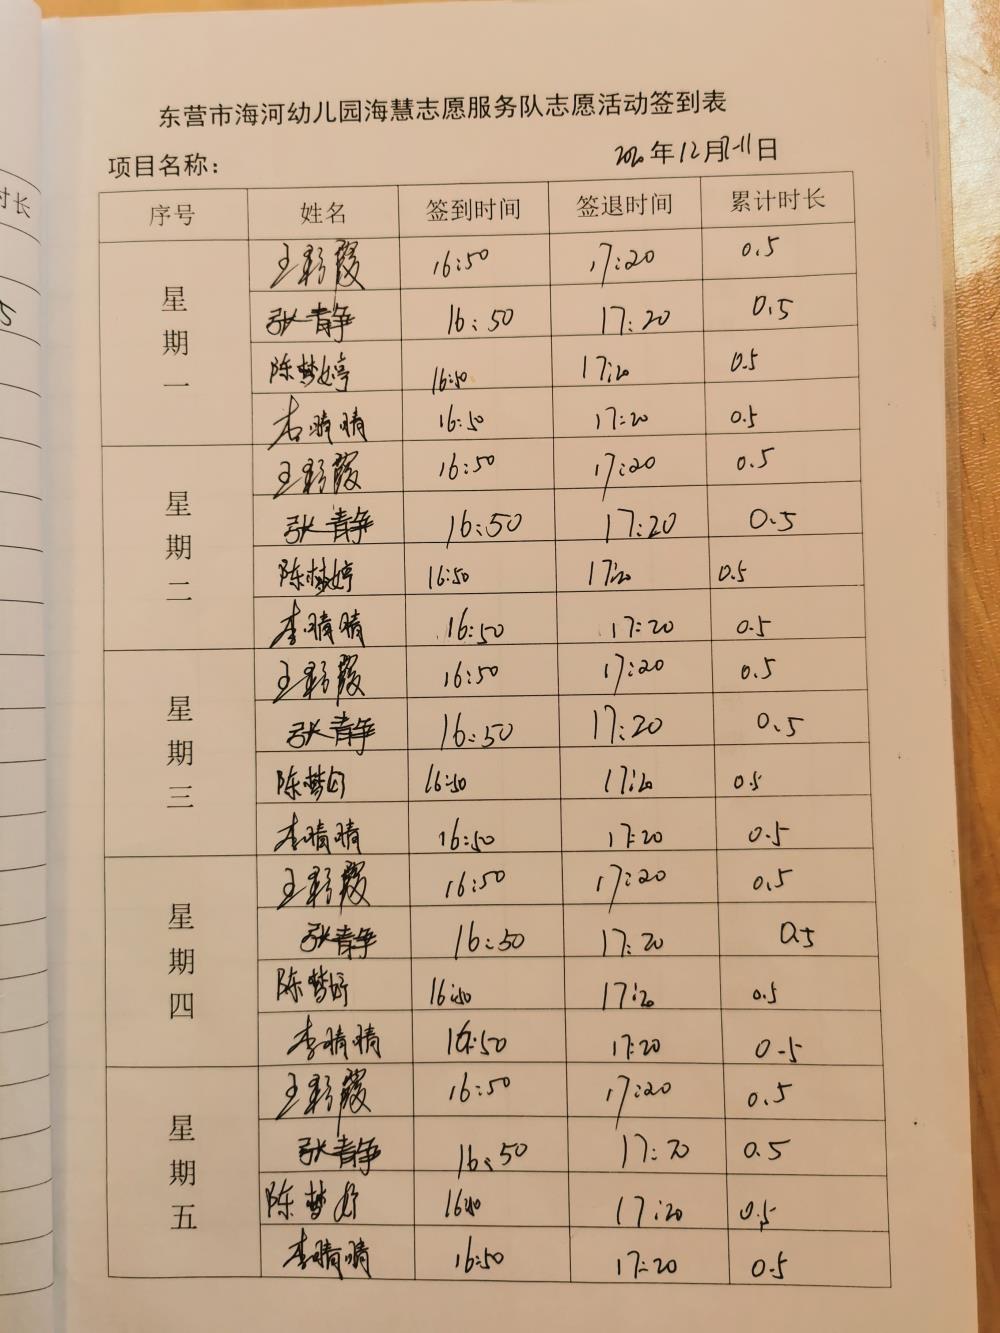 东营市海河幼儿园海慧志愿服务队志愿活动签到表
项目名称： 2020年12月7-11日
序号 姓名 签到时间 签退时间 累计时长
星期一 王彩霞 16:50 17:20 0.5
张青静 16:50 17:20 0.5
陈梦婷 16:50 17:20 0.5
李晴晴 16:50 17:20 0.5
星期二 王彩霞 16:50 17:20 0.5
张青静 16:50 17:20 0.5
陈梦婷 16:50 17:20 0.5
李晴晴 16:50 17:20 0.5
星期三 王彩霞 16:50 17:20 0.5
张青静 16:50 17:20 0.5
陈梦 16:50 17:20 0.5
李晴晴 16:50 17:20 0.5
星期四 王彩霞 16:50 17:20 0.5
张青静 16:50 17:20 0.5
陈梦 16:50 17:20 0.5
李晴晴 16:50 17:20 0.5
星期五 王彩霞 16:50 17:20 0.5
张青静 16:50 17:20 0.5
陈梦 17:20 0.5
李晴晴 16:50 17:20 0.5
时长
5